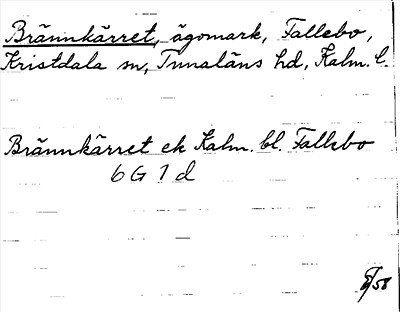 Brännkärret, ägomark, Fallebo,
Kristdala sn, Tunaläns hd, Kalm. l.
Brännkärret ek Kalm. bl. Fallebo
6 G 1 d
/58